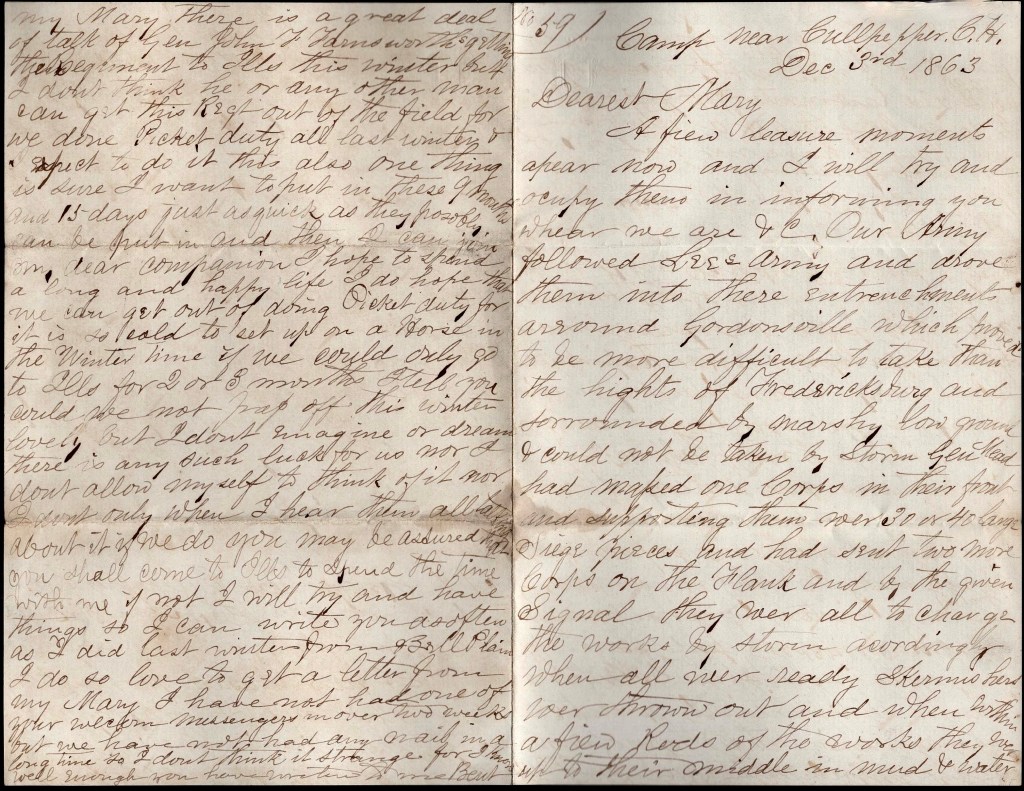 No 59)
Camp near Cullpepper. C. H.
Dec 3rd 1863
Dearest Mary
A fiew leasure moments
apear now and I will try and
ocupy them in informing you
whear we are & C. Our Army
followed Lees Army and drove
them into there entrenchments
arround Gordonsville which proved
to be more difficult to take than
the hights of Fredericksburg and
sorrounded by marshy low ground
& could not be taken by Storm Gen Mead
had massed one Corps in their front
and supporting them wer 30 or 40 large
Siege pieces and had sent two more
Corps on the Flank and by the given
Signal they wer all to charge
the works by storm acordingly
when all wer ready Skermishers
wer thrown out and when within
a fiew Rods of the works they wer
up to their middle in mud & water
my Mary there is a great deal
of talk of Gen John F Farnsworth getting
the Regiment to Ills this winter but
I dont think he or any other man
can get this Regt out of the field for
we done Picket duty all last winter &
expect to do it this also one thing
is sure I want to put in these 9 months
and 15 days just as quick as they
can be put in and then I can
my dear companion I hope to spend
a long and happy life I do hope that
we can get out of doing Picket duty for
it is so cold to set up on a Horse in
the Winter time if we could only go
to Ills for 2 or 3 months I tell you
could we not pass off this winter
lovely but I dont emagine or dream
there is any such luck for us nor I
dont allow myself to think of it nor
I dont only when I hear them all
about it if we do you may be assured that
you shall come to Ills to spend the time
with me if not I will try and have
things so I can write you as often
as I did last winter from Bell Plain
I do so love to get a letter from
my Mary I have not had one of
your welcom messengers in over two weeks
but we have not had any mail in a
long time so I dont think it strange for I know
well enough you have written to me Bent